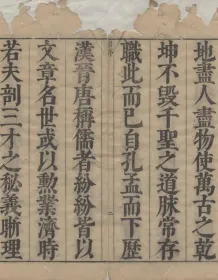 地盡人盡物使萬古之乾
坤不毀千聖之道脉常存
職此而已自孔孟而下歷
漢晉唐稱儒者紛紛者以
文章名世或以勲業濟時
若夫剖三才之秘義晰理